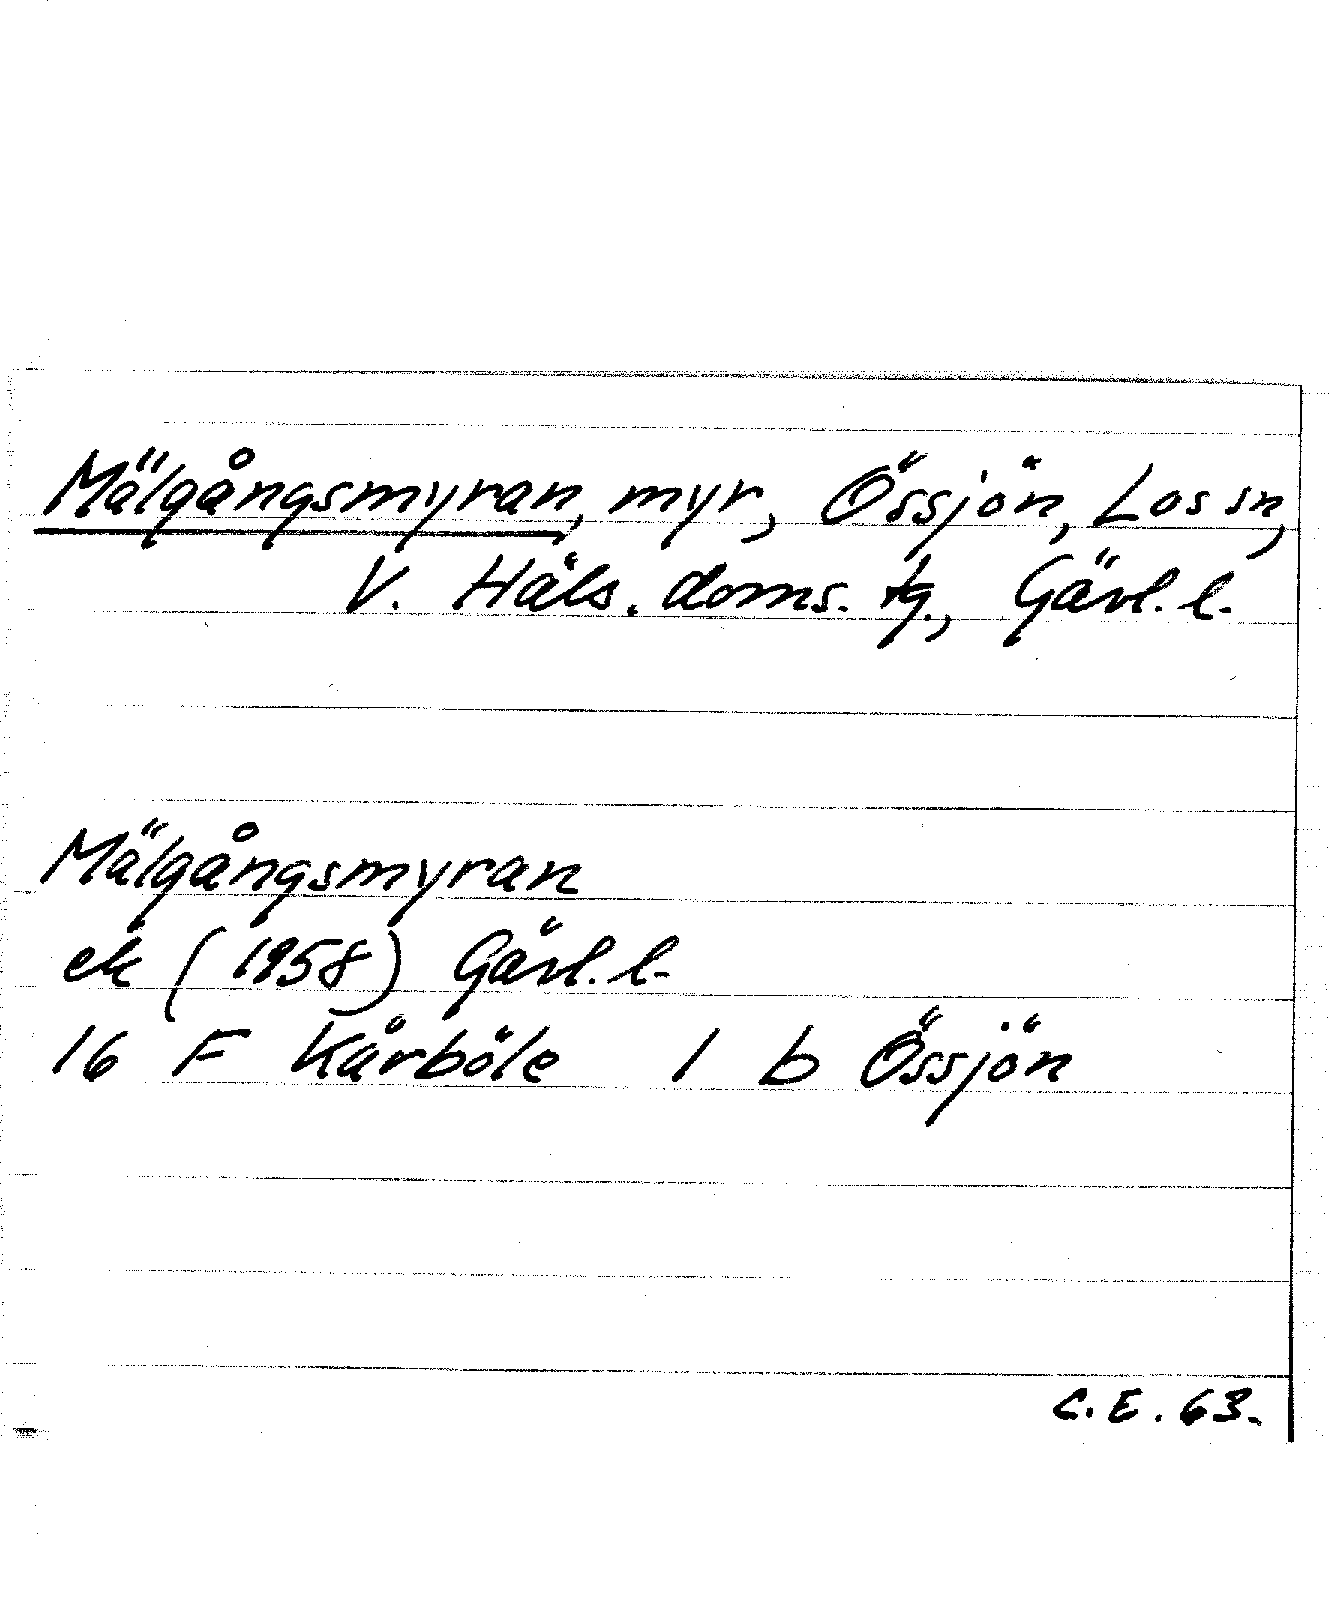 Mälgångsmyran, myr, Össjön, Los sn,
V. Häls. doms. tg., Gävl. l.
Mälgångsmyran
ek (1958) Gävl. l.
16 F Kårböle 1 b Össjön
C.E. 63.